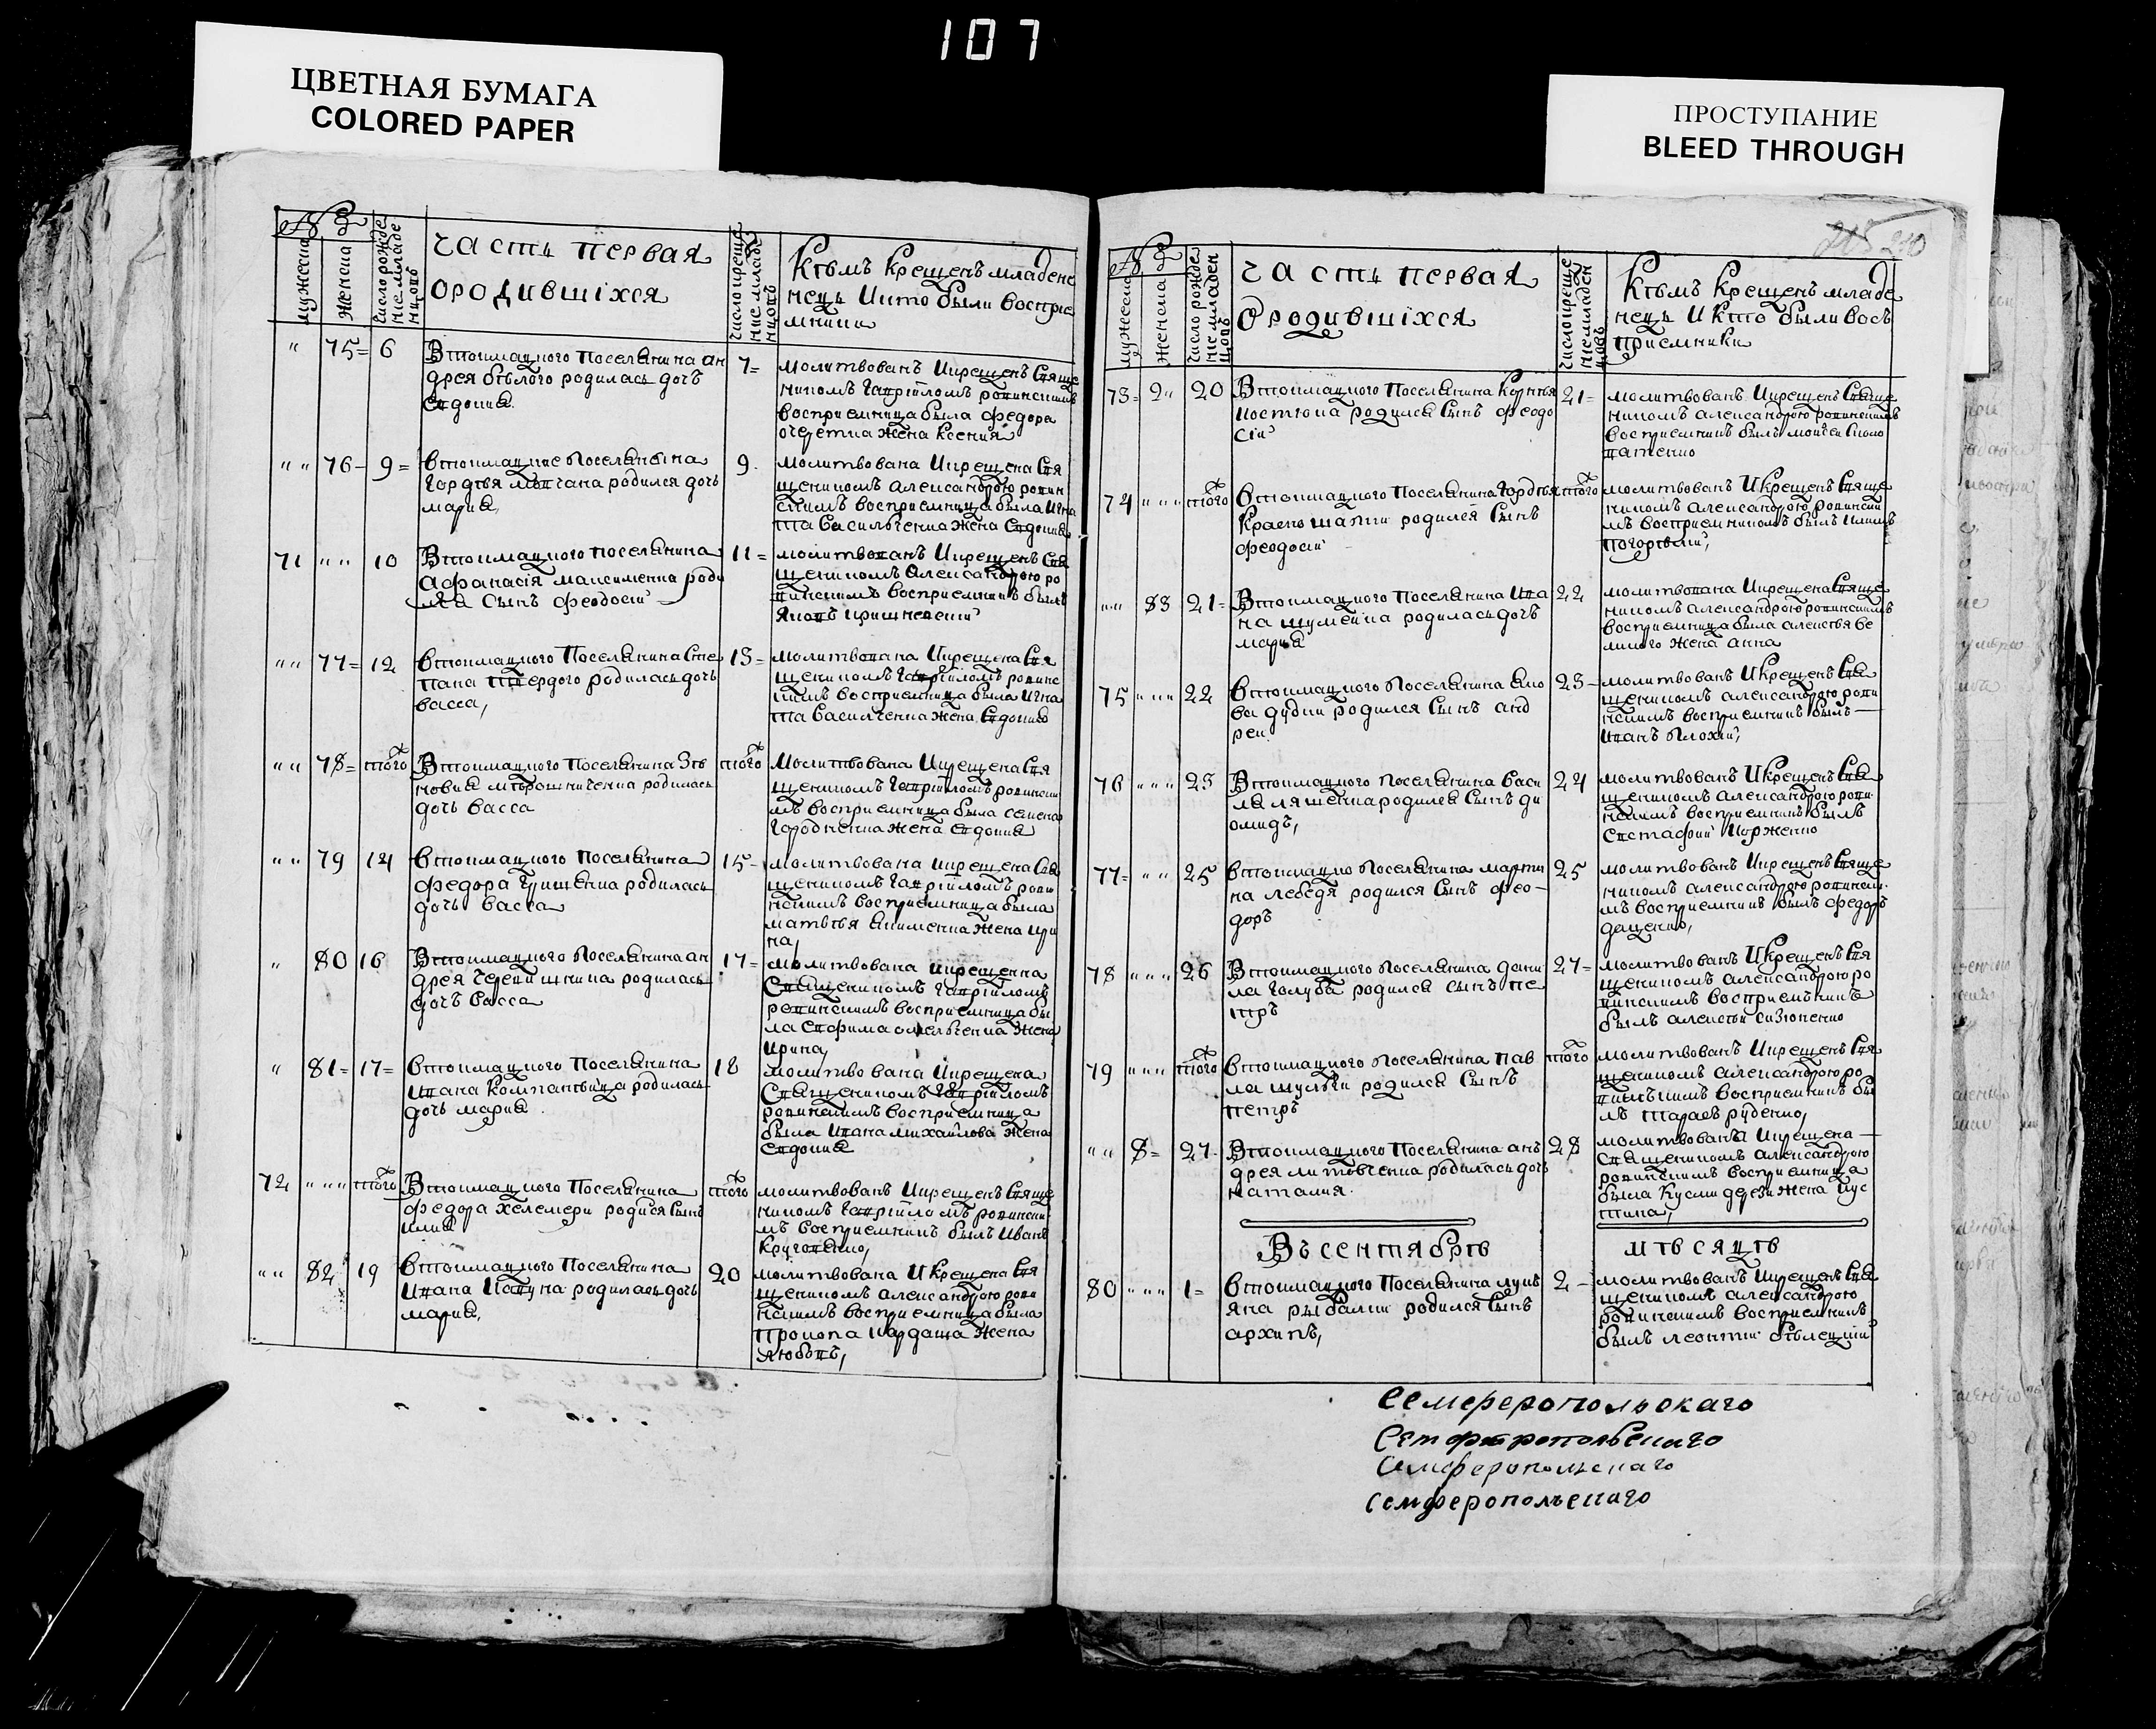 107
ЦВЕТНАЯ БУМАГА
COLORED PAPER
ПРОСТУПАНИЕ
BLEED THROUGH
№
мужеска
женска
число рожде
ние младе
нцовъ
часть первая
ородившіхся
число креще
ние младе
нцовъ
Кѣмъ Крещенъ младене
нецъ Икто были восприе
мники
" 75= 6
Втокмацкого поселянина ан
дрея бѣлого родилась дочь
Евдокия.
7=
молитвованъ Икрещенъ Свяще
никомъ Гавріиломъ ровинскимъ
восприемница была федора
очеретка жена ксения
" " 76- 9=
втокмацкие поселянина
Гордѣя мовчана родился дочь
мария,
9.
молитвована Икрещена Свя
щеникомъ александрою ровин
скимъ восприемница была Игна
та василченка жена Евдокия
71 " " 10
Втокмацкого поселянина
афанасія максименка роди
лся сынъ феодосий
11=
молитвованъ Икрещенъ Свя
щеникомъ александрою ро
винскимъ восприемникъ былъ
яковъ кришневский
" " 77= 12
втокмацкого Поселянина Сте
пана твердого родилась дочь
васса,
13=
молитвована Икрещена Свя
щеникомъ Гавріиломъ ровинс
кимъ восприемница была Игна
та василченка жена Евдокия
" " 78= того
Втокмацкого Поселянина Зѣ
новия мѣрошниченка родилась
дочь васса
того
Молитвована Икрещена Свя
щеникомъ Гавріиломъ ровински
мъ восприемница была семена
городненка жена евдокия
" " 79 14
втокмацкого Поселянина
федора Грищенка родилась
дочь васса
15=
молитвована Икрещена Свя
щеникомъ Гавріиломъ рови
нскимъ восприемница была
матвѣя якименка жена ири
на,
" 80 16
Втокмацкого Поселянина ан
дрея родилась
дочь васса
17=
молитвована Икрещенна
Священикомъ Гавріиломъ
ровинскимъ восприемница бы
ла Евфима омельченка жена
ирина,
" 81= 17=
втокмацкого Поселянина
Ивана компанѣйца родилась
дочь мария
18
молитвована Икрещена
Священикомъ Гавріиломъ
ровинскимъ восприемница
была Ивана михайлова жена
Евдокия
72 " " " того
Втокмацкого Поселянина
федора хелемери родися сынъ
илия
того
молитвованъ Икрещенъ Свяще
никомъ Гавріиломъ ровински
мъ восприемникъ былъ Иванъ
Круговенко,
" " 82 19
втокмацкого Поселянина
Ивана родилась дочь
мария,
20
молитвована Икрещена Свя
щеникомъ александрою рови
нскимъ восприемница была
прокопа кардаша жена
любовь,
215 210
№
мужеска
женска
число рожде
ние младен
цовъ
часть первая
Ородившіхся
число креще
ние младен
цовъ
Кѣмъ Крещенъ младе
нецъ Икто были вось
приемники
73= 2" 20
Втокмацкого Поселянина Корнѣя
костюка родился сынъ феодо
сій
21=
молитвованъ Икрещенъ Свяще
никомъ александрою ровинскимъ
восприемникъ былъ моисей
74 " " " того
втокмацкого поселянина гордѣя
красношапки родился сынъ
феодосий
того
молитвованъ Икрещенъ Свяще
никомъ александрою ровински
мъ восприемникомъ былъ
погорѣлий,
" " 83 21=
Втокмацкого Поселянина Ива
на шумейка родилась дочь
мария
22
молитвована Икрещена Свяще
никомъ александрою ровинскимъ
восприемница была алексѣя ве
ликого жена анна
75 " " " 22
втокмацкого Поселянина яко
ва дудки родился сынъ анд
рей
23-
молитвованъ Икрещенъ Свя
щеникомъ александрою рови
нскимъ восприемникъ былъ
иванъ плохий,
76 " " " 23
Втокмацкого Поселянина васи
ля ляшенка родился сынъ ди
омидъ,
24
молитвованъ Икрещенъ Свя
щеникомъ александрою рови
нскимъ восприемникъ былъ
Евстафий Корженко
77= " " 25
втокмацко Поселянина марти
на лебедя родился сынъ фео-
доръ
25
молитвованъ Икрещенъ Свяще
никомъ александрою ровински
мъ восприемникъ былъ федоръ
даценко,
78 " " " 26
Втокмацкого Поселянина дани
ла голуба родился сынъ пе
тръ
27=
молитвованъ Икрещенъ Свя
щеникомъ александрою ро
винскимъ восприемникъ
былъ алексѣй сизюненко
79 " " " того
втокмацкого Поселянина пав
ла шульги родился сынъ
петръ
того
молитвованъ Икрещенъ Свя
щеникомъ александрою ро
винскимъ восприемникъ бы
лъ тараसъ руденко,
" " 8= 27-
Втокмацкого Поселянина анъ
дрея литовченка родилась дочь
наталия.
28
молитвованъ Икрещена
священикомъ александрою
ровинскимъ восприемница
была кусми дерези жена иус
тина,
Въ сентябрѣ
мѣсяцѣ
80 " " " 1=
втокмацкого Поселянина лукь
яна рыбалки родился сынъ
архипъ,
2-
молитвованъ Икрещенъ Свя
щеникомъ александрою
ровинскимъ восприемникъ
былъ леонтий бѣлецкий
Семферопольскаго
Семферопольскаго
Симферопольскаго
Семферопольскаго